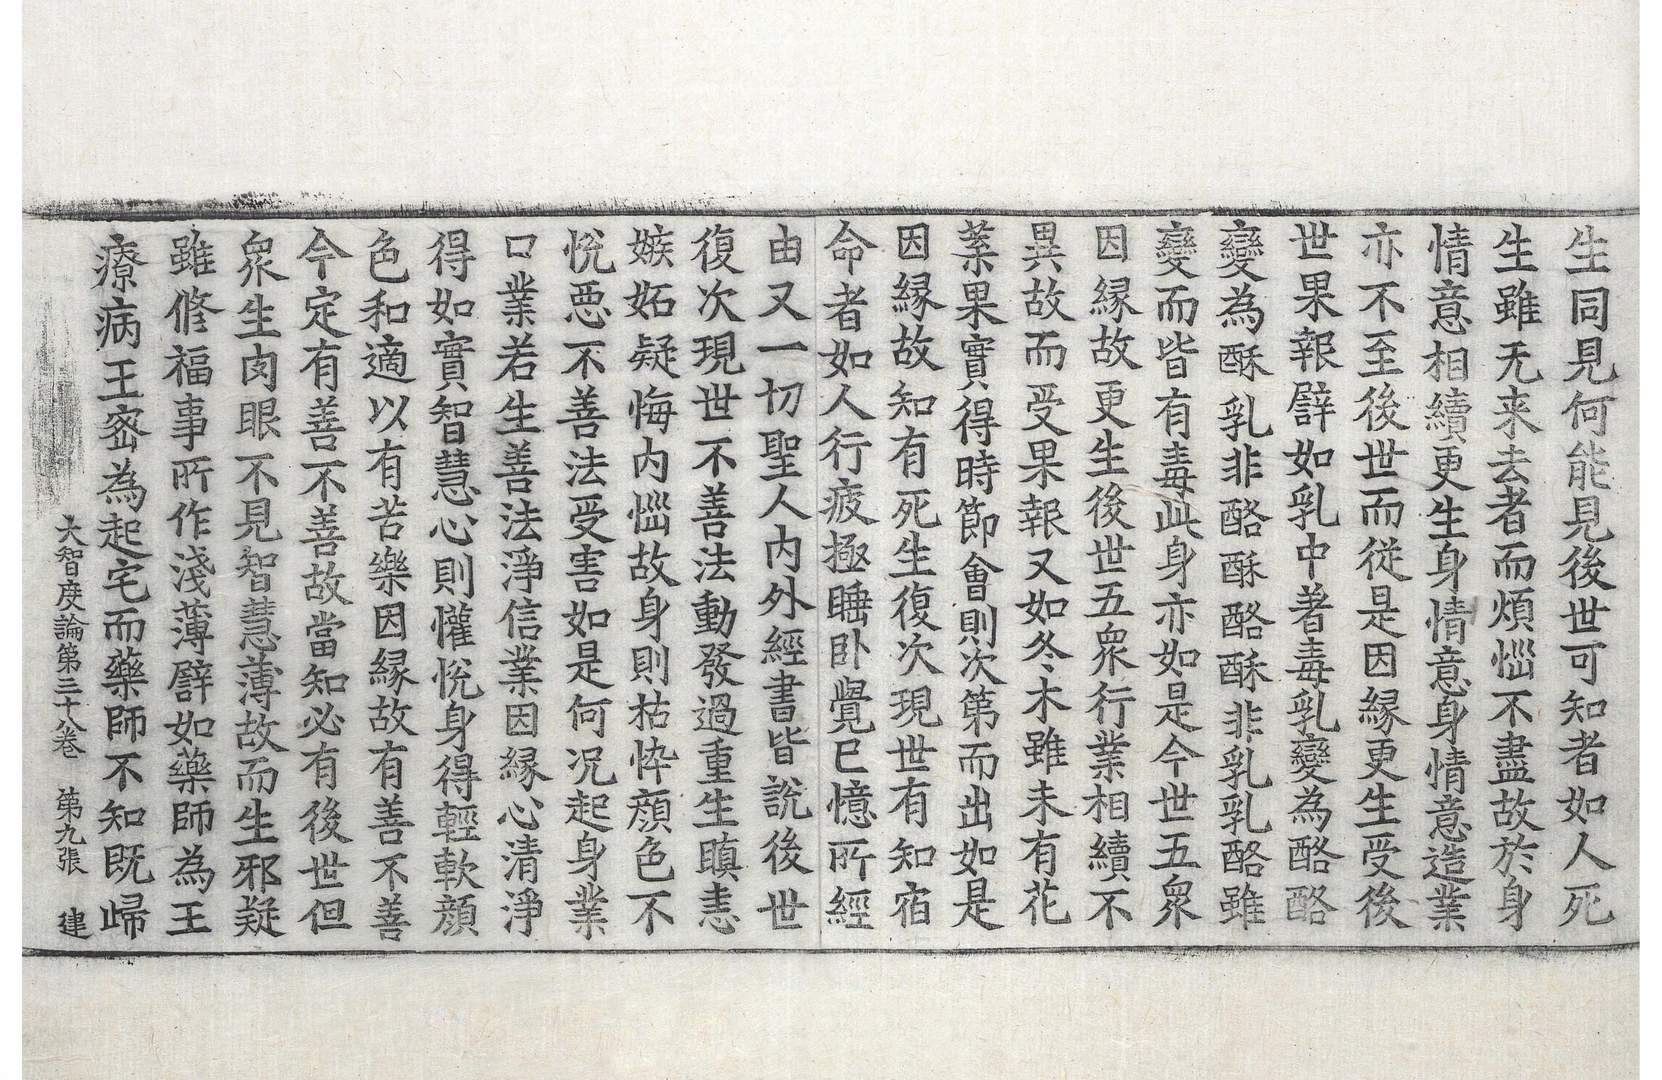 生同見何能見後世可知者如人死
生雖无来去者而煩惱不盡故於身
情意相續更生身情意身情意造業
亦不至後世而從是因緣更生受後
世果報譬如乳中著毒乳變為酪酪
變為酥乳非酪酥酪酥非乳乳酪雖
變而皆有毒此身亦如是今世五衆
因緣故更生後世五衆行業相續不
異故而受果報又如冬木雖未有花
葉果實得時節會則次第而出如是
因緣故知有死生復次現世有知宿
命者如人行疲極睡卧覺已憶所經
由又一切聖人內外經書皆說後世
復次現世不善法動發過重生瞋恚
嫉妬疑悔內惱故身則枯悴顔色不
悅惡不善法受害如是何况起身業
口業若生善法淨信業因緣心清淨
得如實智慧心則懽悅身得輕軟顔
色和適以有苦樂因緣故有善不善
今定有善不善故當知必有後世但
衆生肉眼不見智慧薄故而生邪疑
雖修福事所作淺薄譬如藥師為王
療病王密為起宅而藥師不知既歸
大智度論第三十八卷 第九張 建